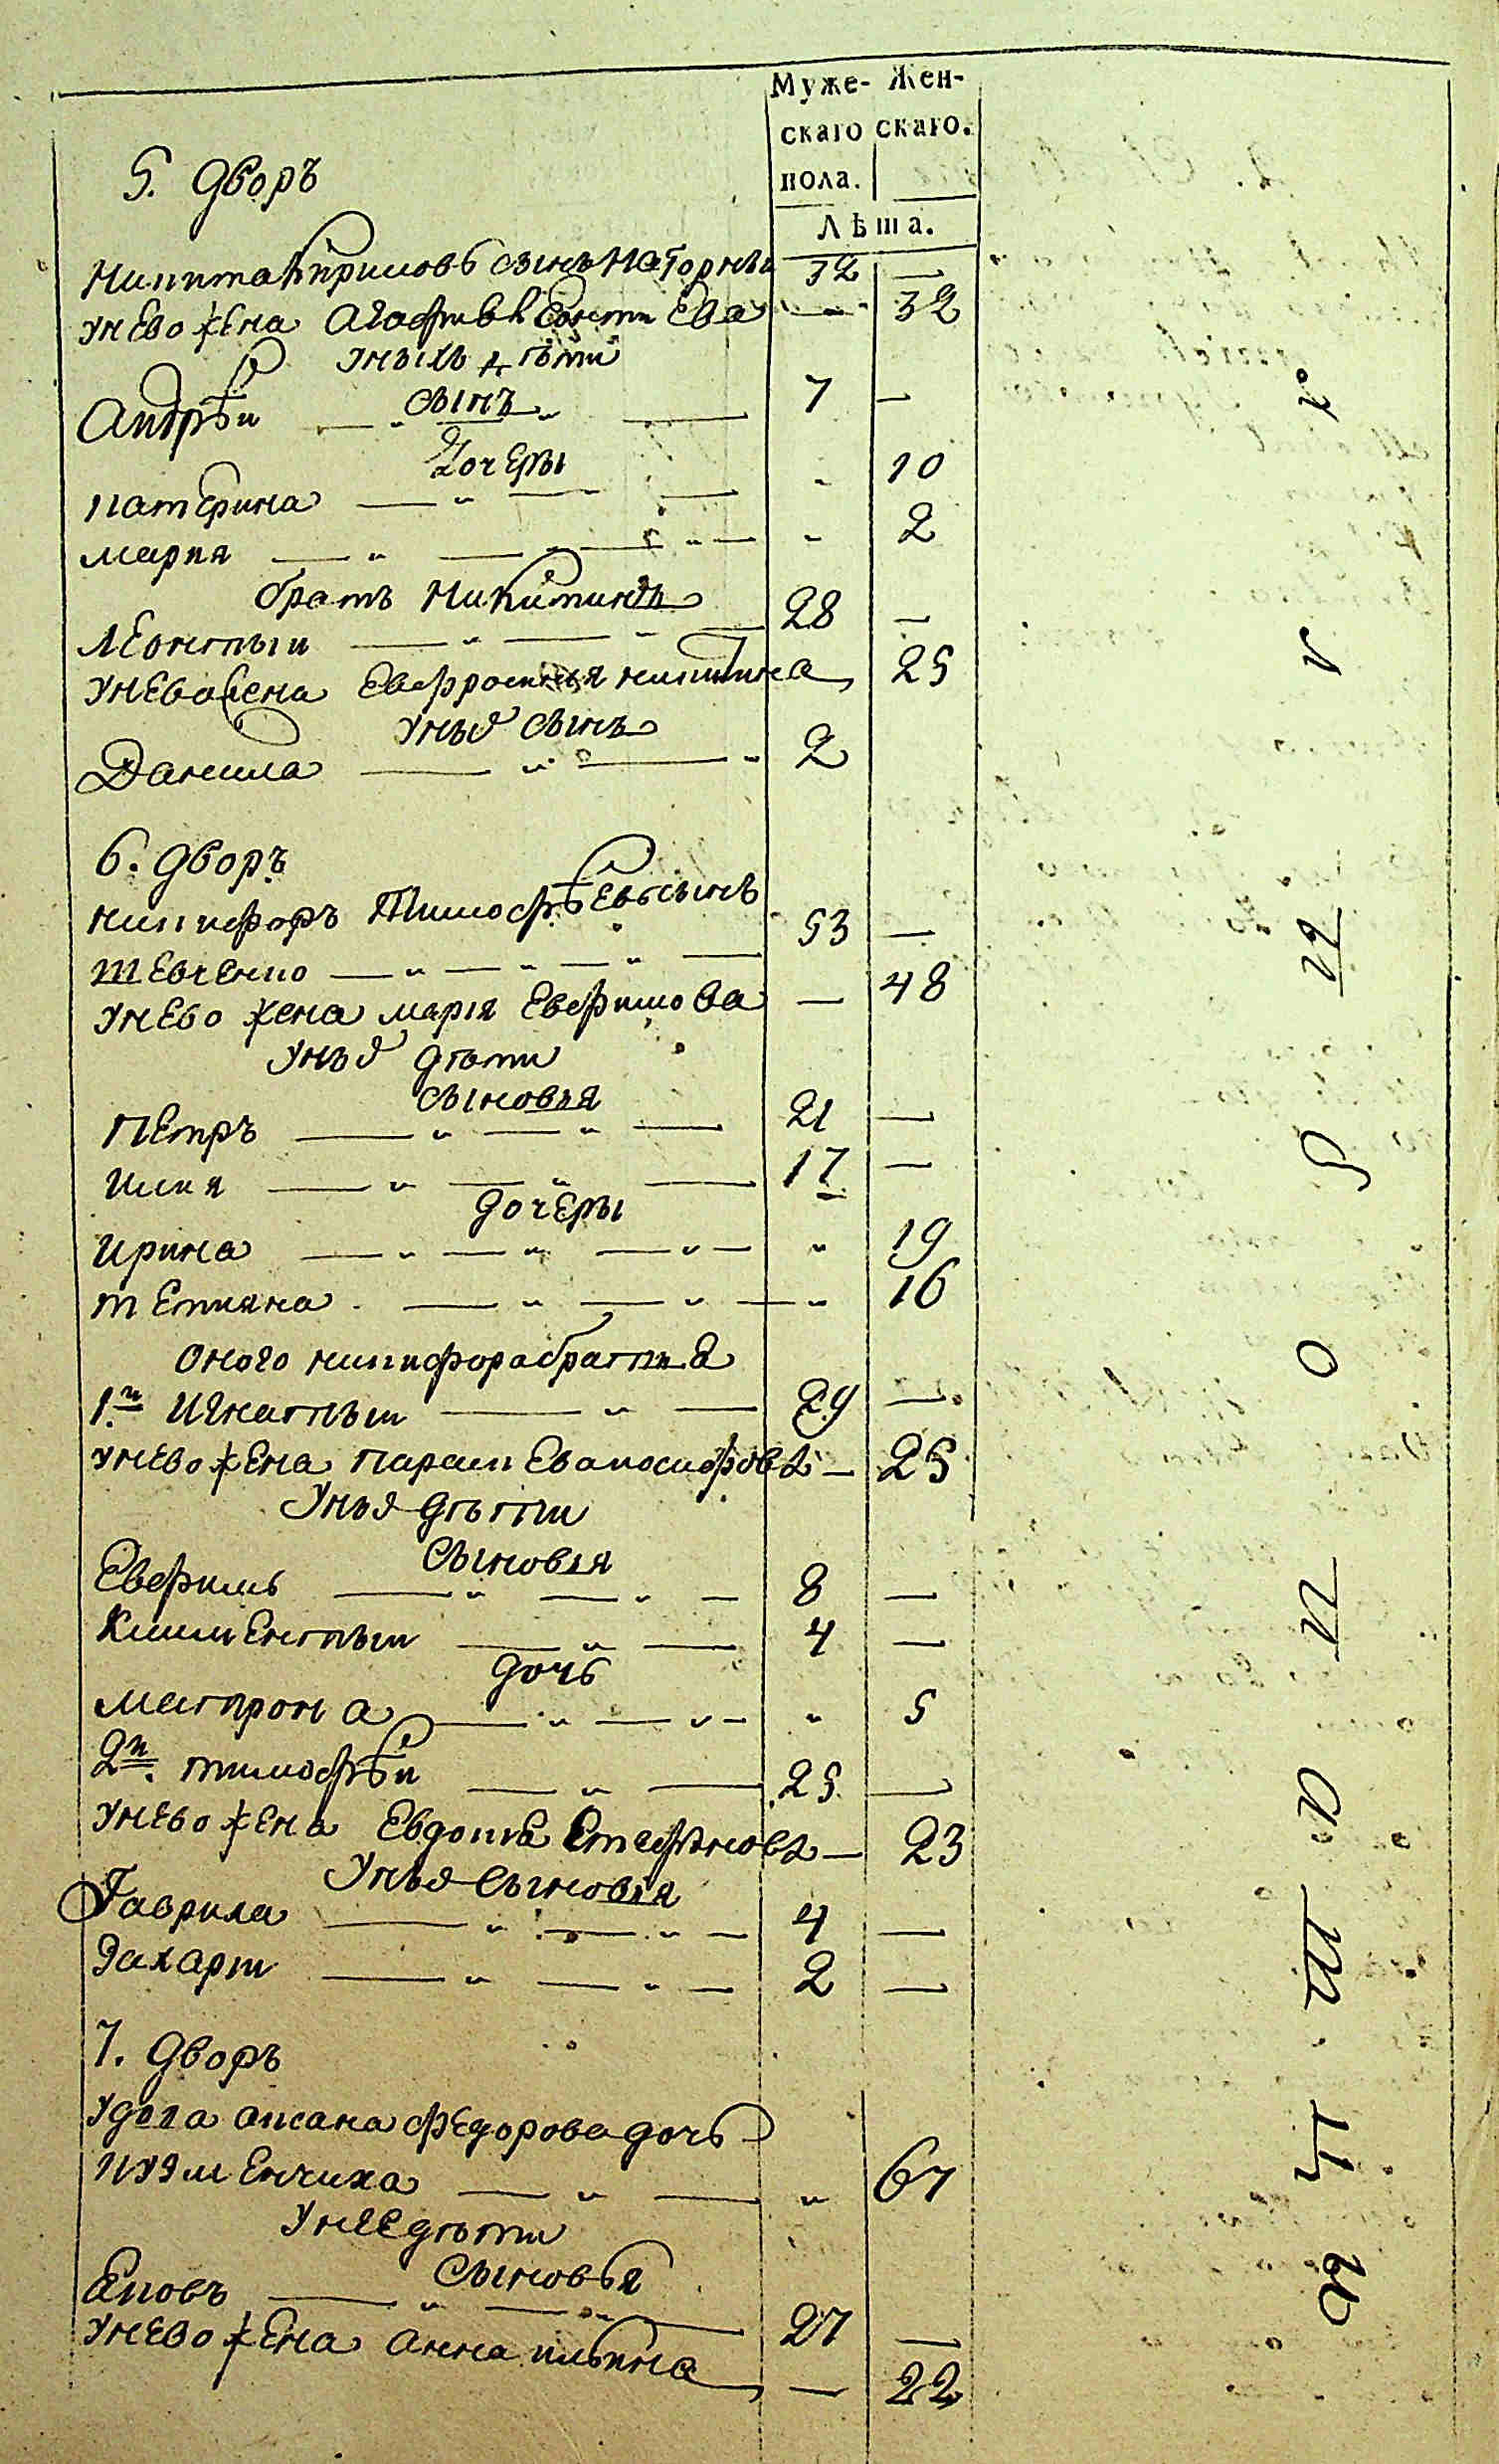 Муже- Жен-
скаго скаго.
пола.
Лѣта.
5. дворъ
Никита Кириловъ сынъ Нагорный 32 —
унево жена Агафия Леонтиева — 32
унихъ дѣти
сынъ
Андрѣй — „ — „ — 7 —
дочеры
Катерина — „ — — „ 10
Мария — „ — „ — „ — „ 2
братъ Никитинъ
Леонтый — „ — „ — 28 —
унево жена Евфросинья Никитина 25
уныхъ сынъ
Данила — „ — „ 2
6. дворъ
Никифоръ Тимофѣевъ сынъ
Шевченко — „ — „ — „ — 53 —
унево жена Марія Евфимова — 48
уныхъ дѣти
сыновья
Петръ — „ — „ — 21 —
Илия — „ — „ — 17 —
дочеры
Ирина — „ — „ — „ — „ 19
Тетияна — „ — „ — „ 16
оного Никифора братья
1й Игнатый — „ — 29 —
унево жена Параскева 25
уныхъ дѣти
сыновья
Евфимъ — „ — „ — 8 —
Климентый — „ — 4 —
дочь
Матрона — „ — „ — „ 5
2й Тимофѣй — „ — 25 —
унево жена Евдокия Стефанова — 23
уныхъ сыновья
Гаврила — „ — „ — 4 —
Захарій — „ — „ — 2 —
7. дворъ
удова Оксана Федорова дочь
Кузменчиха — „ — „ 67
унее дѣти
сыновья
Яковъ — „ — „ — 27 —
унево жена Анна Ильина — 22